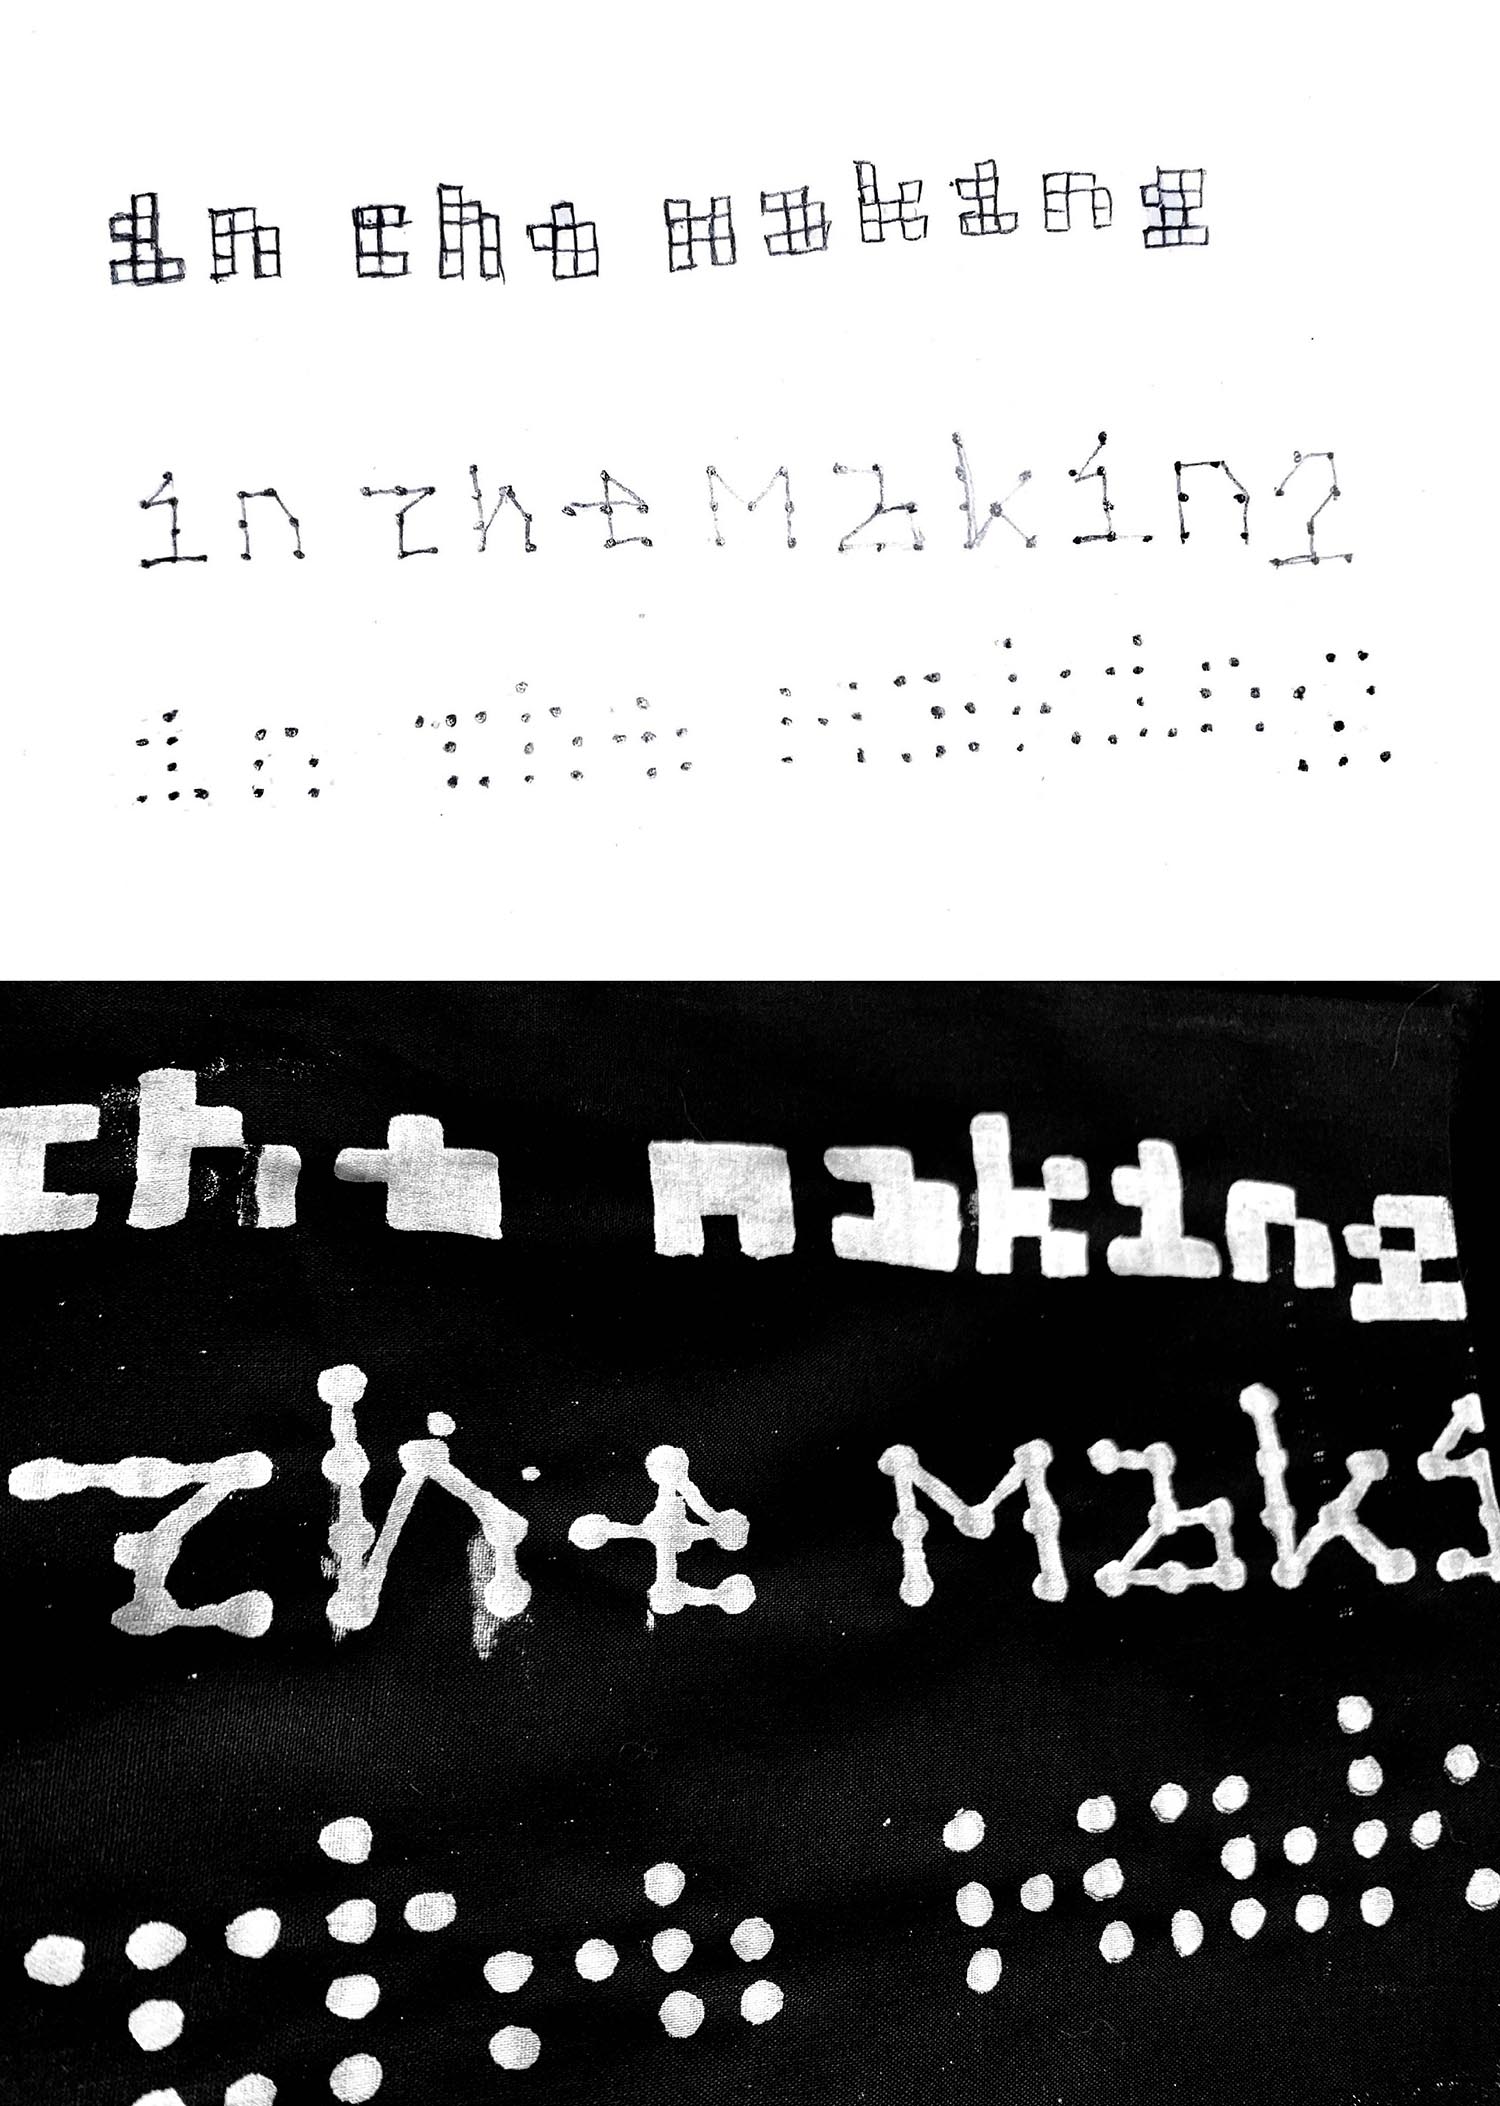 in the making
in the Making
in the Making
the making
the Maki
the Mak